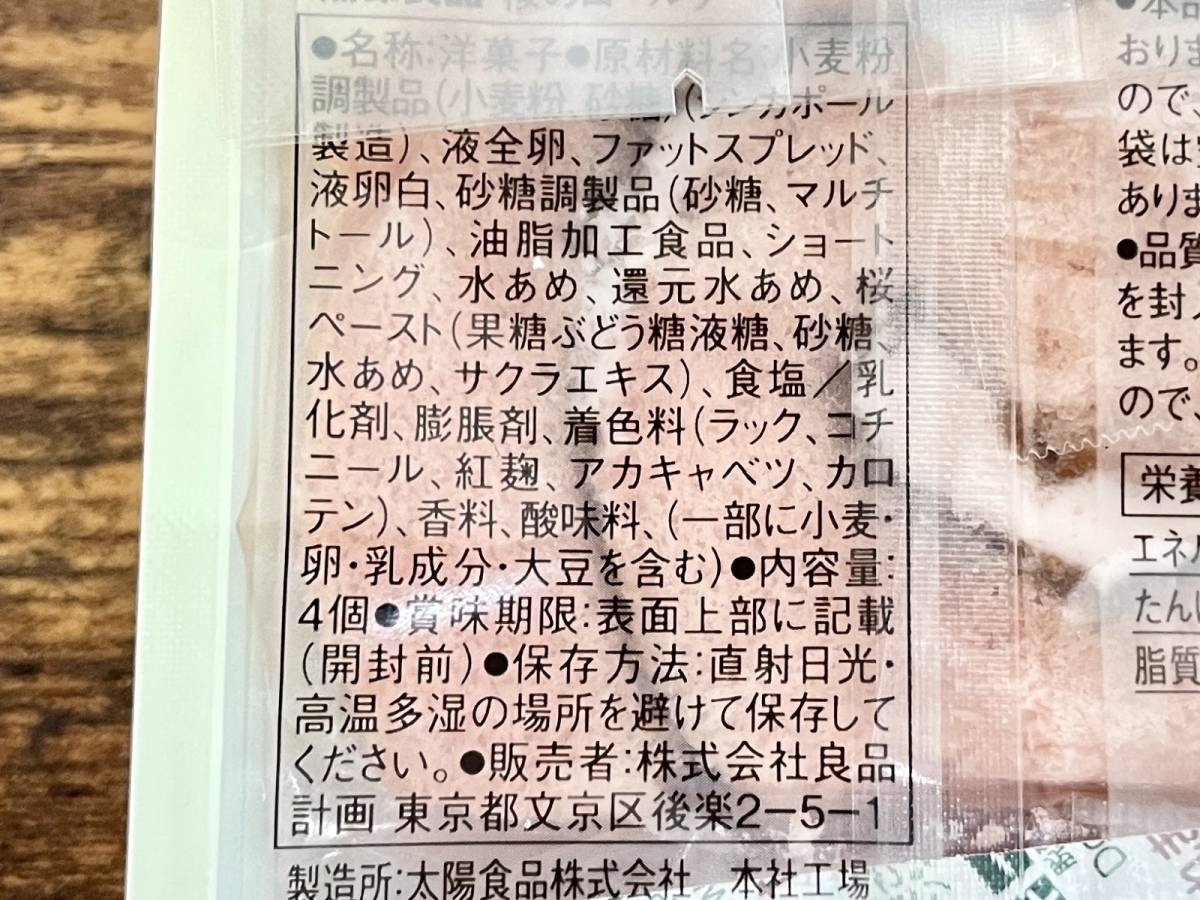 ●名称:洋菓子●原材料名:小麦粉
調製品(小麦粉、砂糖)(シンガポール
製造)、液全卵、ファットスプレッド、
液卵白、砂糖調製品(砂糖、マルチ
トール)、油脂加工食品、ショート
ニング、水あめ、還元水あめ、桜
ペースト(果糖ぶどう糖液糖、砂糖、
水あめ、サクラエキス)、食塩/乳
化剤、膨脹剤、着色料(ラック、コチ
ニール、紅麹、アカキャベツ、カロ
テン)、香料、酸味料、(一部に小麦・
卵・乳成分・大豆を含む)●内容量:
4個●賞味期限:表面上部に記載
(開封前)●保存方法:直射日光・
高温多湿の場所を避けて保存して
ください。●販売者:株式会社良品
計画 東京都文京区後楽2-5-1
製造所:太陽食品株式会社 本社工場
●本品
おりま
ので、
袋は
ありま
●品質
を封入
ます。
ので、
栄養
エネル
たん
脂質